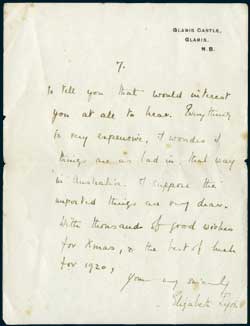 GLAMIS CASTLE,
GLAMIS.
N.B.
7.
to tell you that would interest
you at all to hear. Everything
so very expensive, I wonder if
things are as bad in that way
in Australia. I suppose the
imported things are very dear.
With thousands of good wishes
for Xmas, & the best of luck
for 1920,
Yours very sincerely
Elizabeth Lyon